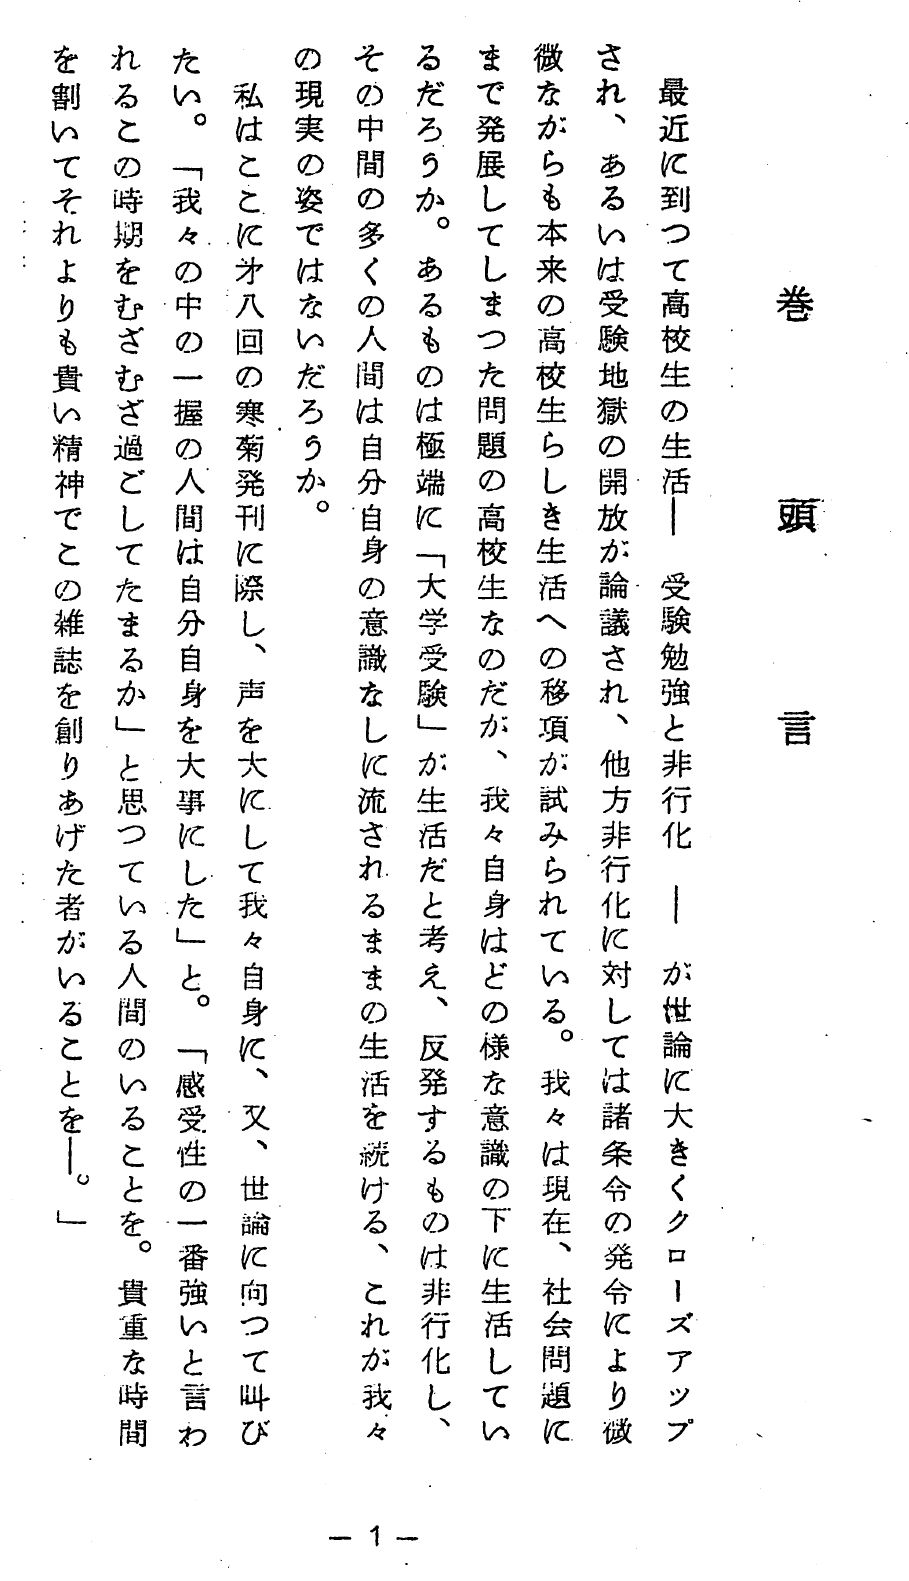 巻頭言
最近に到つて高校生の生活― 受験勉強と非行化 ― が世論に大きくクローズアップ
され、あるいは受験地獄の開放が論議され、他方非行化に対しては諸条令の発令により微
微ながらも本来の高校生らしき生活への移項が試みられている。我々は現在、社会問題に
まで発展してしまつた問題の高校生なのだが、我々自身はどの様な意識の下に生活してい
るだろうか。あるものは極端に「大学受験」が生活だと考え、反発するものは非行化し、
その中間の多くの人間は自分自身の意識なしに流されるままの生活を続ける、これが我々
の現実の姿ではないだろうか。
私はここに才八回の寒菊発刊に際し、声を大にして我々自身に、又、世論に向つて叫び
たい。「我々の中の一握の人間は自分自身を大事にした」と。「感受性の一番強いと言わ
れるこの時期をむざむざ過ごしてたまるか」と思つている人間のいることを。貴重な時間
を割いてそれよりも貴い精神でこの雑誌を創りあげた者がいることを―。」
― 1 ―